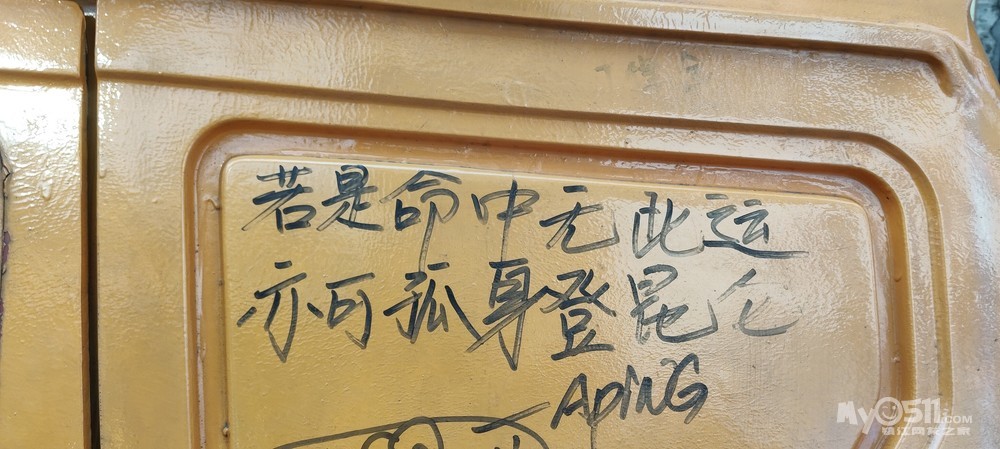 若是命中无此运
亦可孤身登昆仑
APiNG
My0511.COM
镇江网友之家